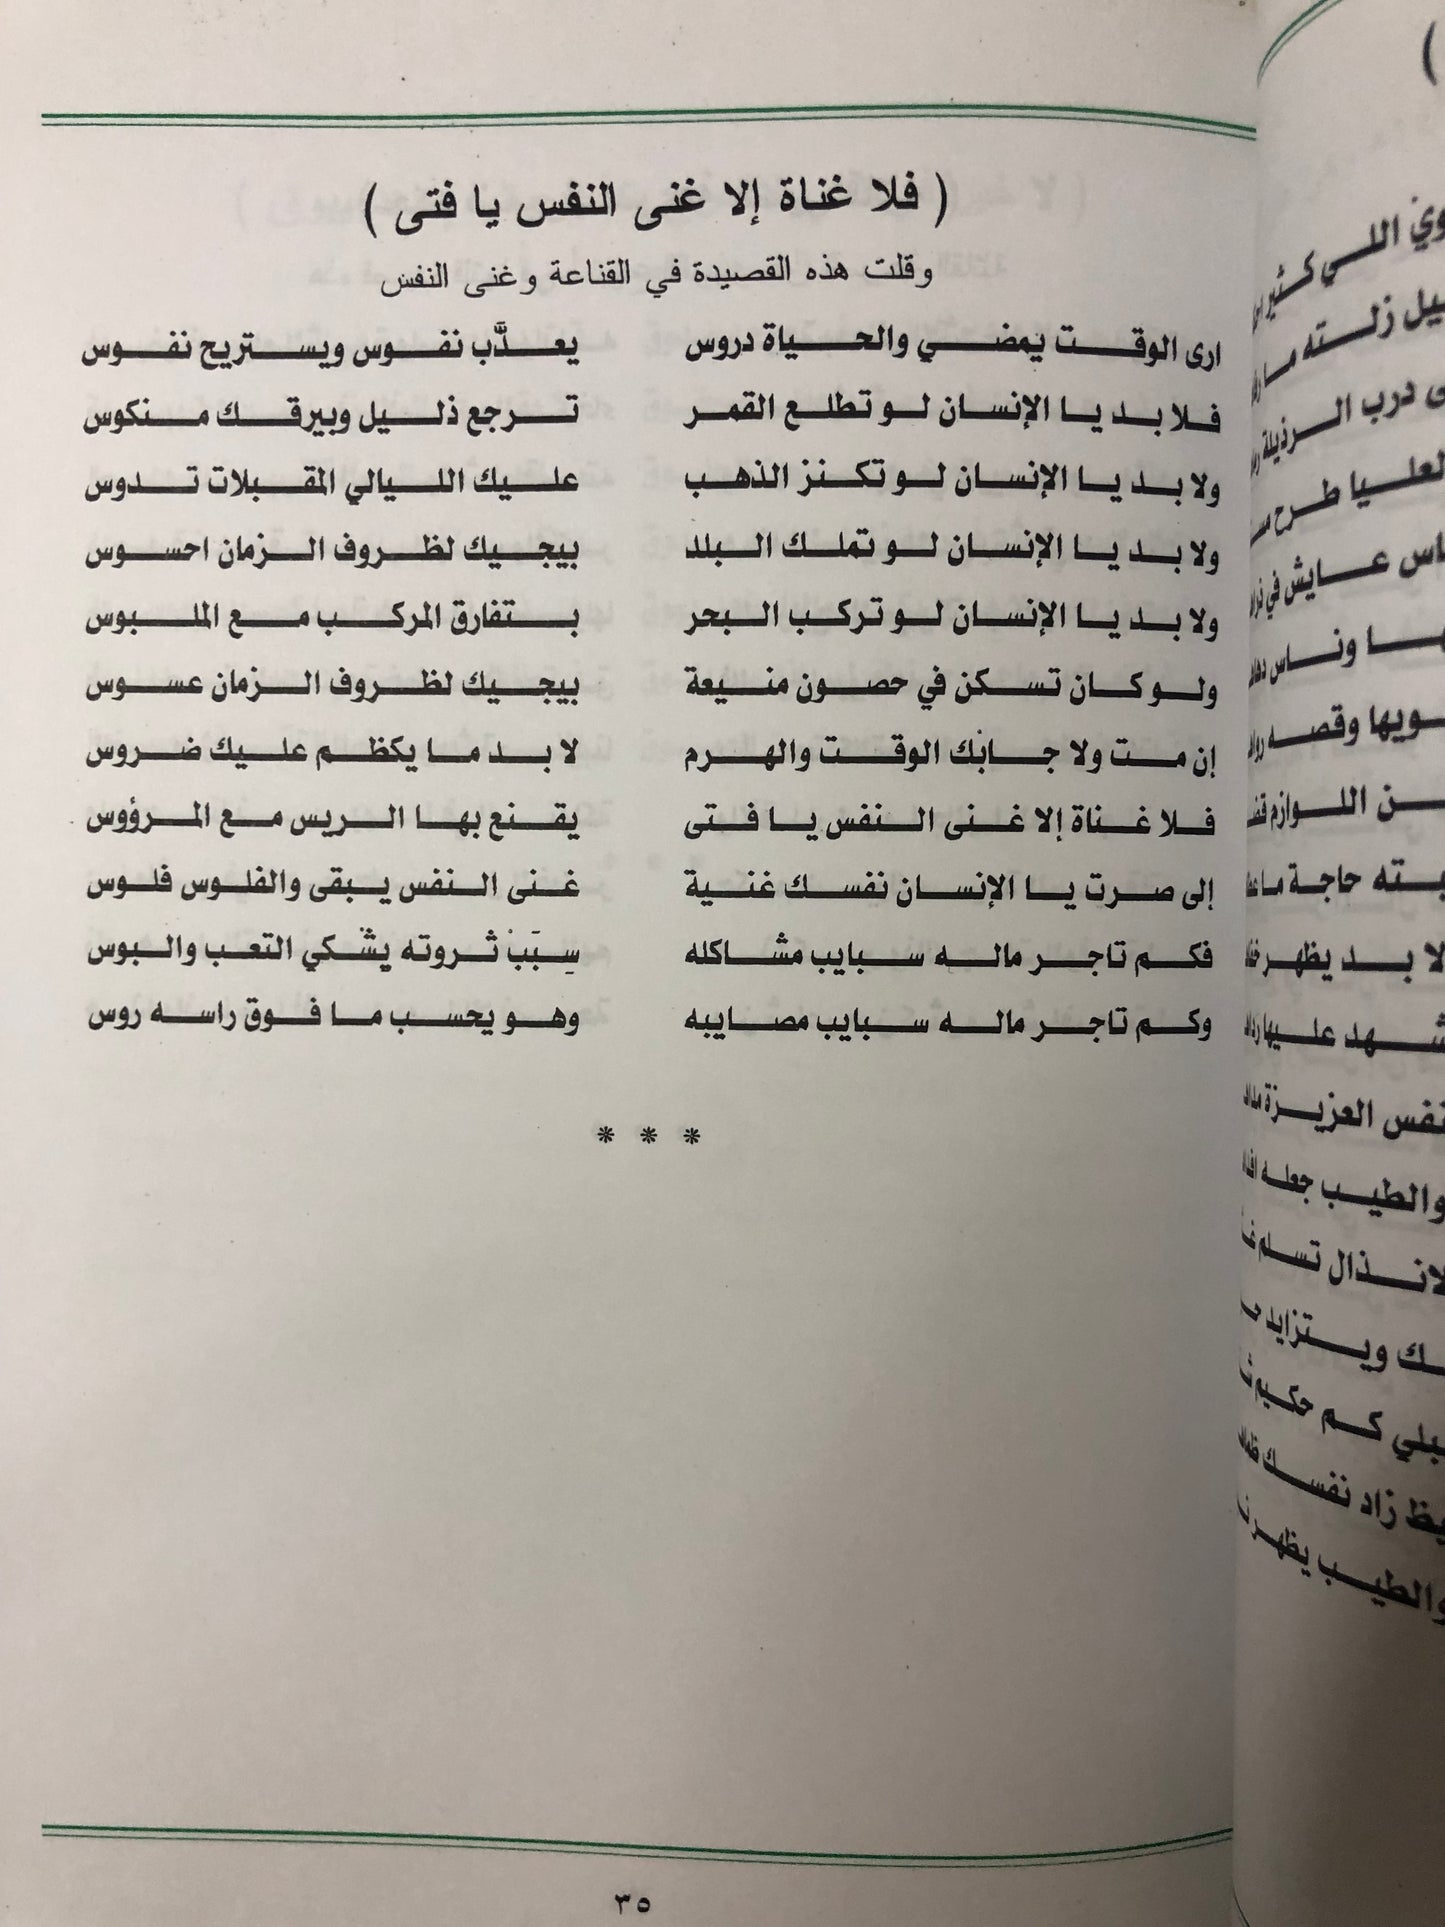 ( فلا غناة إلا غنى النفس يا فتى )
وقلت هذه القصيدة في القناعة وغنى النفس
ارى الوقت يمضي والحياة دروس يعذَّب نفوس ويستريح نفوس
فلا بد يا الإنسان لو تطلع القمر ترجع ذليل وبيرقك منكوس
ولا بد يا الإنسان لو تكنز الذهب عليك الليالي المقبلات تدوس
ولا بد يا الإنسان لو تملك البلد بيجيك لظروف الزمان احسوس
ولا بد يا الإنسان لو تركب البحر بتفارق المركب مع الملبوس
ولو كان تسكن في حصون منيعة بيجيك لظروف الزمان عسوس
إن مت ولا جابك الوقت والهرم لا بد ما يكظم عليك ضروس
فلا غناة إلا غنى النفس يا فتى يقنع بها الريس مع المرؤوس
إلى صرت يا الإنسان نفسك غنية غنى النفس يبقى والفلوس فلوس
فكم تاجر ماله سبايب مشاكله سِبَبْ ثروته يشكي التعب والبوس
وكم تاجر ماله سبايب مصايبه وهو يحسب ما فوق راسه روس
* * *
٣٥
اللي كثير
زلته
درب الرذيلة
العليا طرح
عايش في
وناس
وقصه
اللوازم
حاجة
لا بد يظهر
عليها
العزيزة
والطيب جعله
تسلم
ويتزايد
كم حكيم
زاد نفسك
والطيب يظهر